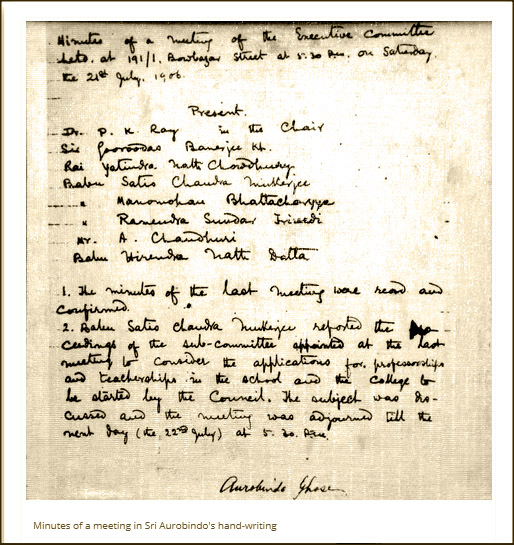 Minutes of a meeting of the Executive Committee
held at 191/1, Bowbazar Street at 5.30 P.m. on Saturday
the 21st July, 1906.
Present.
Dr. P. K. Ray in the Chair
Sir Gooroodas Banerjee Kt.
Rai Yatindra Nath Chowdhury
Babu Satis Chandra Mukerjee
" Manomohan Bhattacharyya
" Ramendra Sundar Trivedi
Mr. A. Chaudhuri
Babu Hirendra Nath Datta
1. The minutes of the last meeting were read and
confirmed.
2. Babu Satis Chandra Mukerjee reported the pro-
ceedings of the sub-committee appointed at the last
meeting to consider the applications for professorships
and teacherships in the school and the College to
be started by the Council. The subject was dis-
cussed and the meeting was adjourned till the
next day (the 22nd July) at 5.30 P.m.
Aurobindo Ghose
Minutes of a meeting in Sri Aurobindo's hand-writing